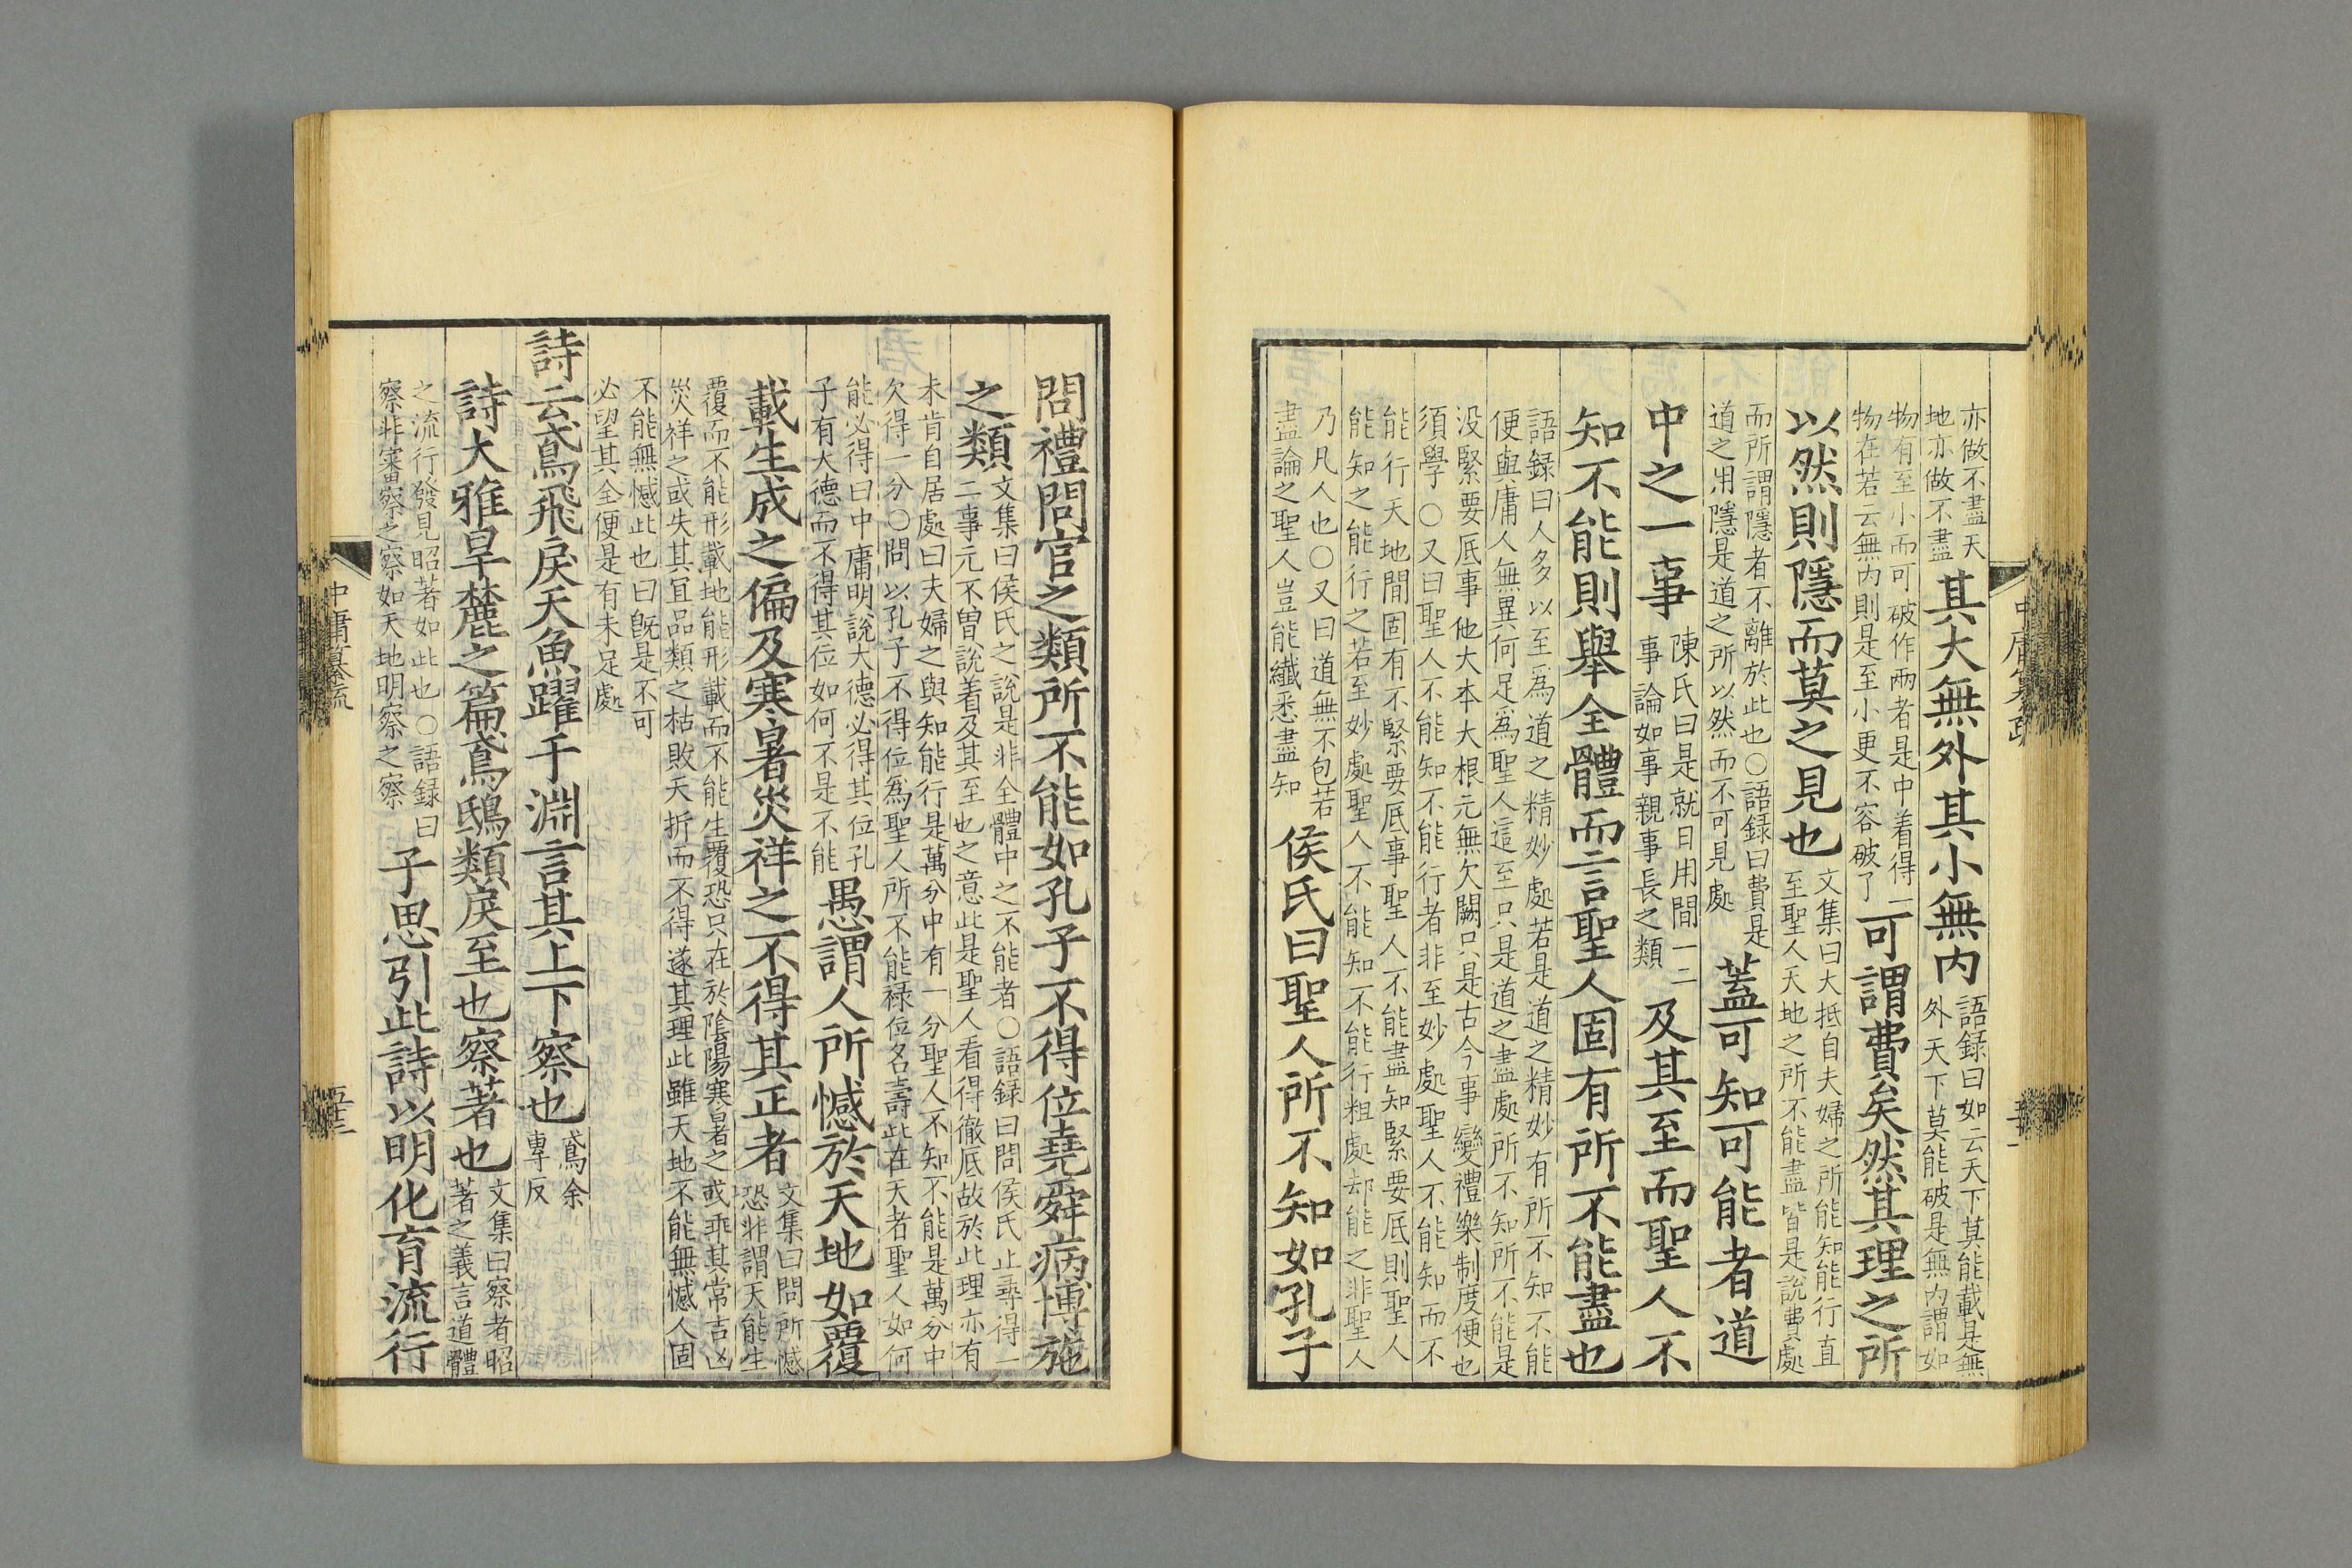 亦做不盡天
地亦做不盡
其大無外其小無内
語録曰如云天下莫能載是無
外天下莫能破是無内謂如
物有至小而可破作兩者是中着得一
物在若云無内則是至小更不容破了
可謂費矣然其理之所
以然則隱而莫之見也
文集曰大抵自夫婦之所能知能行直
至聖人天地之所不能盡皆是說費處
而所謂隱者不離於此也〇語録曰費是
道之用隱是道之所以然而不可見處
蓋可知可能者道
中之一事
陳氏曰是就日用間一二
事論如事親事長之類
及其至而聖人不
知不能則舉全體而言聖人固有所不能盡也
語録曰人多以至爲道之精妙處若是道之精妙有所不知不能
便與庸人無異何足爲聖人這至只是道之盡處所不知所不能是
没緊要底事他大本大根元無欠闕只是古今事變禮樂制度便也
須學〇又曰聖人不能知不能行者非至妙處聖人不能知而不
能行天地間固有不緊要底事聖人不能盡知緊要底則聖人
能知之能行之若至妙處聖人不能知不能行粗處却能之非聖人
乃凡人也〇又曰道無不包若
盡論之聖人豈能纖悉盡知
侯氏曰聖人所不知如孔子
中庸纂疏
問禮問官之類所不能如孔子不得位堯舜病博施
之類
文集曰侯氏之說是非全體中之不能者〇語録曰問侯氏止尋得一
二事元不曽說着及其至也之意此是聖人看得徹底故於此理亦有
未肯自居處曰夫婦之與知能行是萬分中有一分聖人不知不能是萬分中
欠得一分〇問以孔子不得位爲聖人所不能禄位名壽此在天者聖人如何
能必得曰中庸明說大德必得其位孔
子有大德而不得其位如何不是不能
愚謂人所憾於天地如覆
載生成之偏及寒暑災祥之不得其正者
文集曰問所憾
恐非謂天能生
覆而不能形載地能形載而不能生覆恐只在於陰陽寒暑之或乖其常吉凶
災祥之或失其宜品類之枯敗夭折而不得遂其理此雖天地不能無憾人固
不能無憾此也曰旣是不可
必望其全便是有未足處
詩云鳶飛戾天魚躍于淵言其上下察也
鳶余
專反
詩大雅旱麓之篇鳶鴟類戾至也察著也
文集曰察者昭
著之義言道體
之流行發見昭著如此也〇語録曰
察非審察之察如天地明察之察
子思引此詩以明化育流行
中庸纂疏
五十二